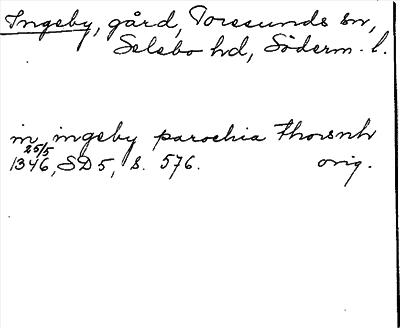 Ingeby, gård, Toresunds sn,
Selebo hd, Söderm. l.
in ingeby parochia Thorsnh
25/5
1346, SD 5, s. 576. orig.